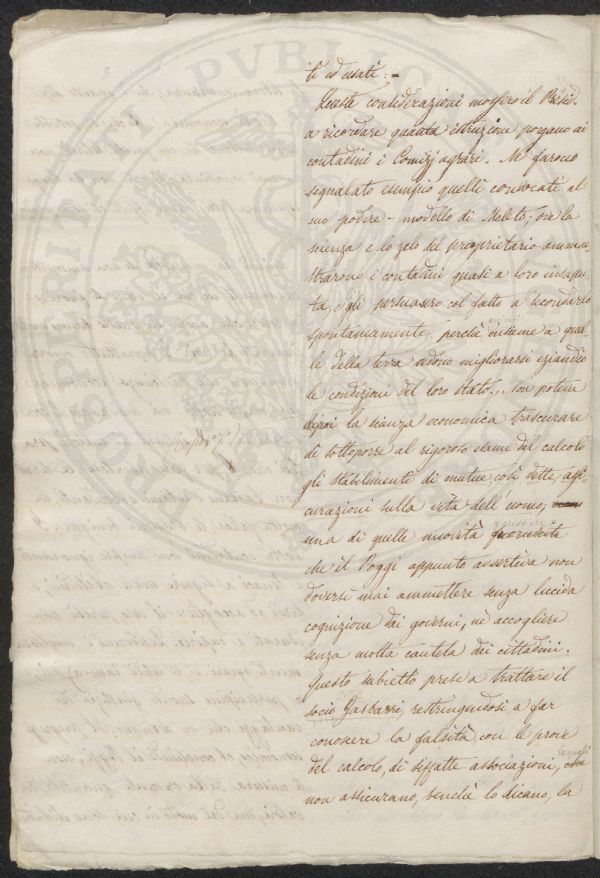 ti ed usati: -
Queste considerazioni mossero il Presid.
a ricordare quanta istruzione porgano ai
contadini i Comizj agrarj. Ne furono
segnalato esempio quelli convocati al
suo podere - modello di Meleto; ove la
scienza e lo zelo del proprietario ammae
strarono i contadini quasi a loro insapu
ta, e gli persuasero col fatto a secondarlo
spontaneamente, perchè insieme a quel
le della terra vedono migliorarsi eziandio
le condizioni del loro stato. Non poteva
dipoi la scienza economica trascurare
di sottoporre al rigoroso esame del calcolo
gli stabilimenti di mutue, così dette, assi
curazioni sulla vita dell'uomo;
una di quelle novità
che il Poggi appunto asseriva non
doversi mai ammettere senza lucida
cognizione dai governi, nè accogliere
senza molta cautela dai cittadini.
Questo subietto prese a trattare il
socio Gasbarri, restringendosi a far
conoscere la falsità, con le prove
del calcolo, di siffatte associazioni, lequali
non assicurano, benchè lo dicano, la
PROSPERITATI PVBLICAE